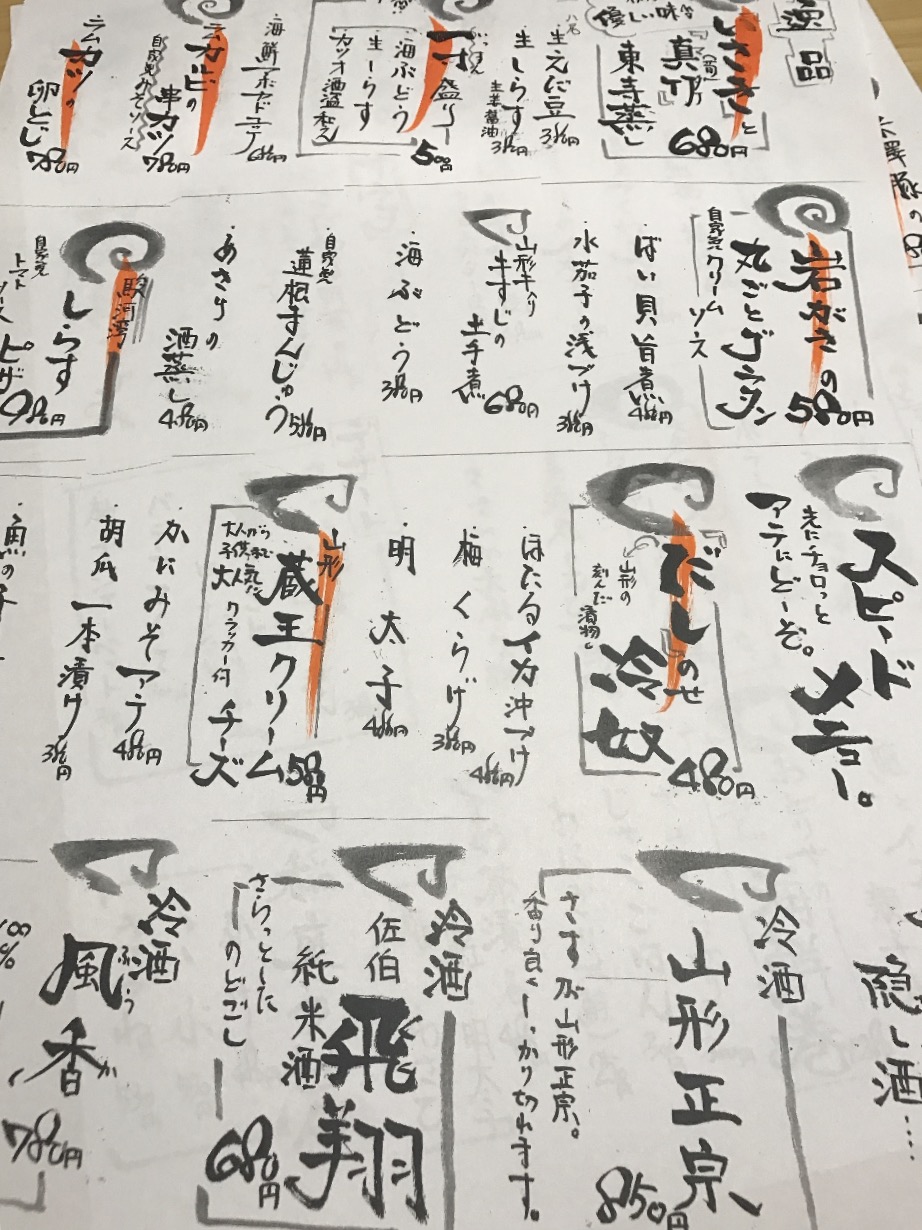 逸品
優しい味
いさきと
真旬
東寺蒸し
680円
生えだ豆
380円
生しらす
生姜醤油
380円
一寸盛り
海ぶどう
生しらす
カツオ酒盗和え
500円
海鮮
680円
串カツ
自家製みそソース
780円
ラムカツの
卵とじ
780円
岩がきの
丸ごとグラタン
自家製クリームソース
580円
ばい貝旨煮
480円
水茄子の浅づけ
380円
山形牛入り
牛すじの
土手煮
680円
海ぶどう
380円
自家製
蓮根まんじゅう
580円
あさりの
酒蒸し
480円
駿河湾
しらす
自家製
トマト
ソース
ピザ
980円
スピードメニュー。
先にチョロっと
アテにどーぞ。
『だし』のせ
冷奴
山形の
刻んだ
漬物
480円
ほたるイカ沖づけ
480円
梅くらげ
380円
明太子
480円
山形
蔵王クリーム
チーズ
大人から
子供まで
大人気
クラッカー付
580円
かにみそアテ
480円
胡瓜一本漬け
380円
魚の
隠し酒…
冷酒
山形正宗
さすが山形正宗。
香り良くしっかり切れます。
850円
冷酒
佐伯
飛翔
純米酒
さらっとした
のどごし
680円
冷酒
風香
ふうか
780円
100%